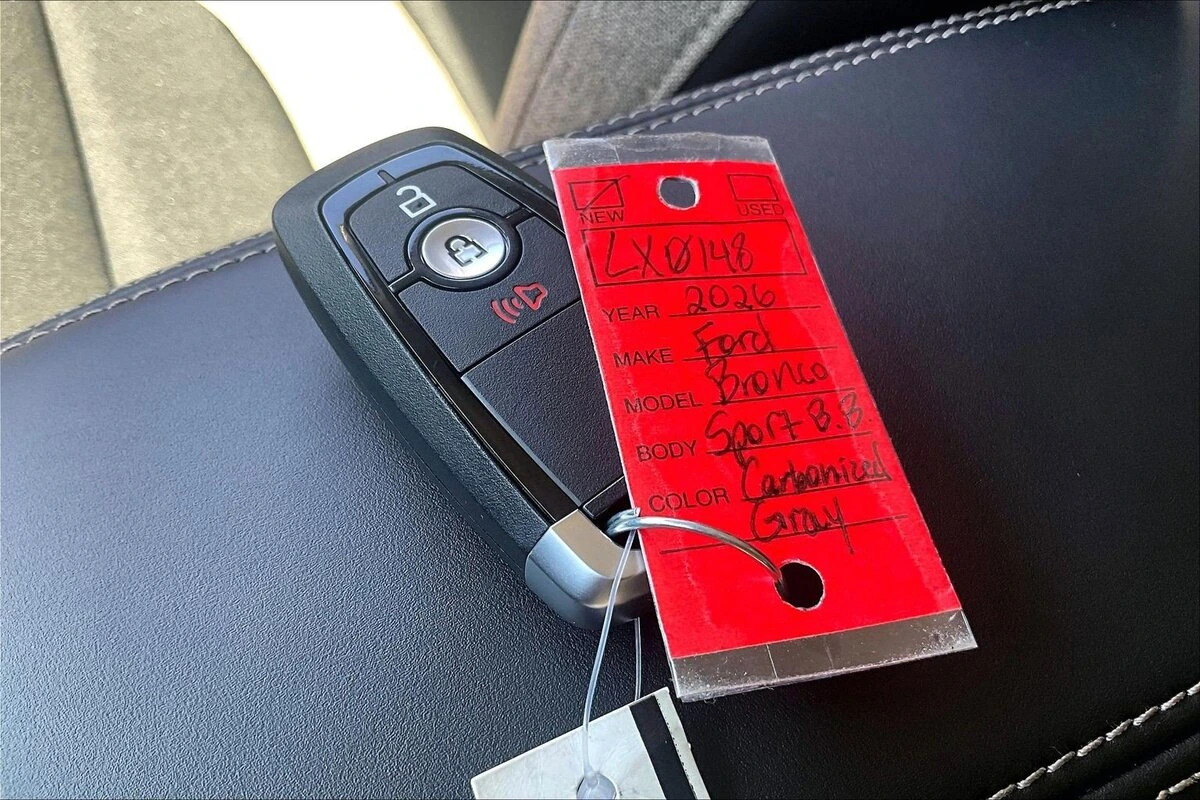 NEW USED
LXØ148
YEAR 2026
MAKE Ford
MODEL Bronco
BODY Sport B.B.
COLOR Carbonized
Gray